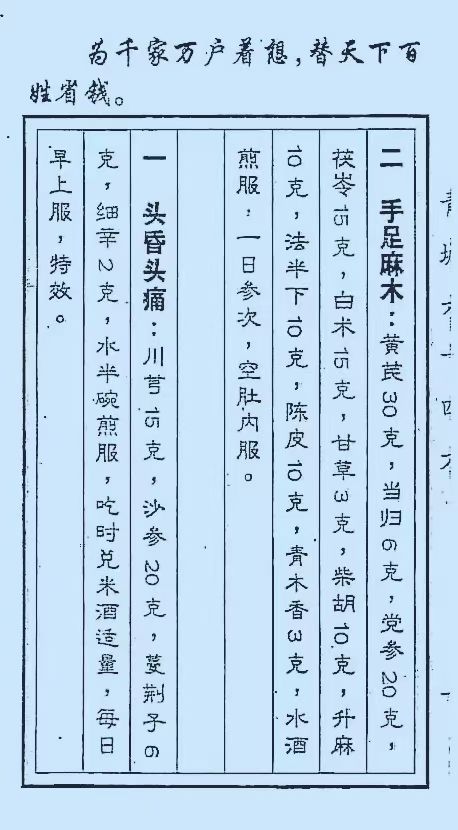 为千家万户着想，替天下百
姓省钱。
二 手足麻木：黄芪30克，当归6克，党参20克，
茯苓15克，白术15克，甘草3克，柴胡10克，升麻
10克，法半下10克，陈皮10克，青木香3克，水酒
煎服，一日参次，空肚内服。
一 头昏头痛：川芎15克，沙参20克，蔓荆子6
克，细辛2克，水半碗煎服，吃时兑米酒适量，每日
早上服，特效。